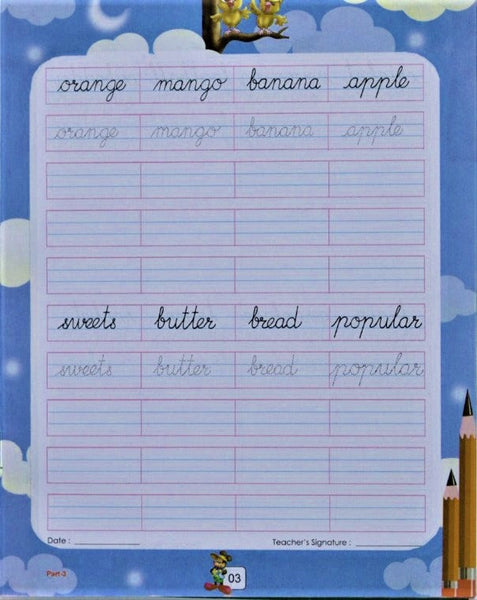 orange mango banana apple
orange mango banana apple
sweets butter bread popular
sweets butter bread popular
Date : ____________ Teacher's Signature : ____________
Part-3
03